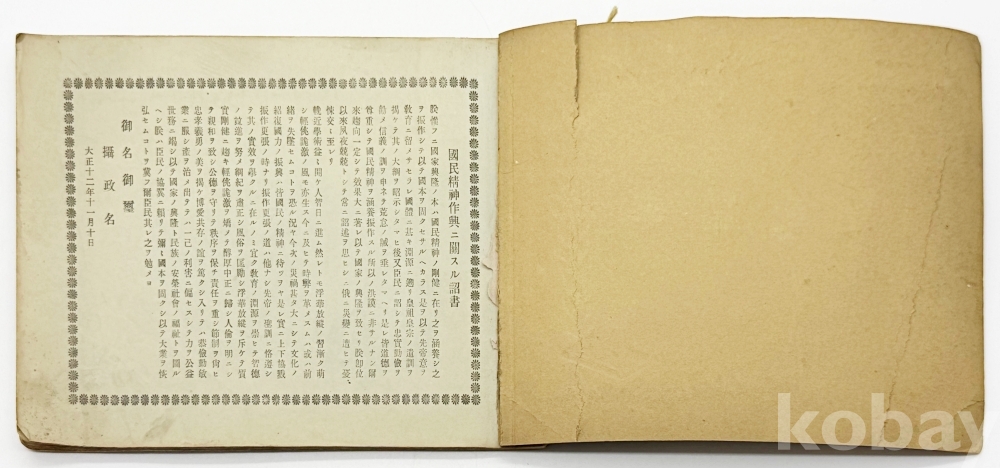 國民精神作興ニ關スル詔書
朕惟フニ國家興隆ノ本ハ國民精神ノ剛健ニ在リ之ヲ涵養シ之
ヲ振作シテ以テ國本ヲ固クセサルヘカラス是ヲ以テ先帝意ヲ
敎育ニ留メサセラレ國體ニ基キ淵源ニ遡リ皇祖皇宗ノ遺訓ヲ
掲ケテ其ノ大綱ヲ昭示シタマヒ後又臣民ニ詔シテ忠實勤儉ヲ
勸メ信義ノ訓ヲ申ネテ荒怠ノ誡ヲ垂レタマヘリ是レ皆道德ヲ
尊重シテ國民精神ヲ涵養振作スル所以ノ洪謨ニ非サルナシ爾
來趨向一定シテ效果大ニ著レ以テ國家ノ興隆ヲ致セリ朕即位
以來夙夜兢兢トシテ常ニ紹述ヲ思ヒシニ俄ニ災變ニ遭ヒテ憂
悚交〻至レリ
輓近學術益〻開ケ人智日ニ進ム然レトモ浮華放縱ノ習漸ク萠
シ輕佻詭激ノ風モ亦生ス今ニ及ヒテ時弊ヲ革メスムハ或ハ前
緖ヲ失墜セムコトヲ恐ル況ヤ今次ノ災禍甚タ大ニシテ文化ノ
紹復國力ノ振興ハ皆國民ノ精神ニ待ツヲヤ是レ實ニ上下協戮
振作更張ノ時ナリ振作更張ノ道ハ他ナシ先帝ノ聖訓ニ恪遵シ
テ其ノ實效ヲ擧クルニ在ルノミ宜ク敎育ノ淵源ヲ崇ヒテ智德
ノ竝進ヲ努メ綱紀ヲ肅正シ風俗ヲ匡勵シ浮華放縱ヲ斥ケテ質
實剛健ニ趨キ輕佻詭激ヲ矯メテ醇厚中正ニ歸シ人倫ヲ明ニシ
テ親和ヲ致シ公德ヲ守リテ秩序ヲ保チ責任ヲ重シ節制ヲ尚ヒ
忠孝義勇ノ美ヲ揚ケ博愛共存ノ誼ヲ篤クシ入リテハ恭儉勤敏
業ニ服シ產ヲ治メ出テテハ一己ノ利害ニ偏セスシテ力ヲ公益
世務ニ竭シ以テ國家ノ興隆ト民族ノ安榮社會ノ福祉トヲ圖ル
ヘシ朕ハ臣民ノ協翼ニ賴リテ彌〻國本ヲ固クシ以テ大業ヲ恢
弘セムコトヲ冀フ爾臣民其レ之ヲ勉メヨ
御名御璽
攝政名
大正十二年十一月十日
kobay